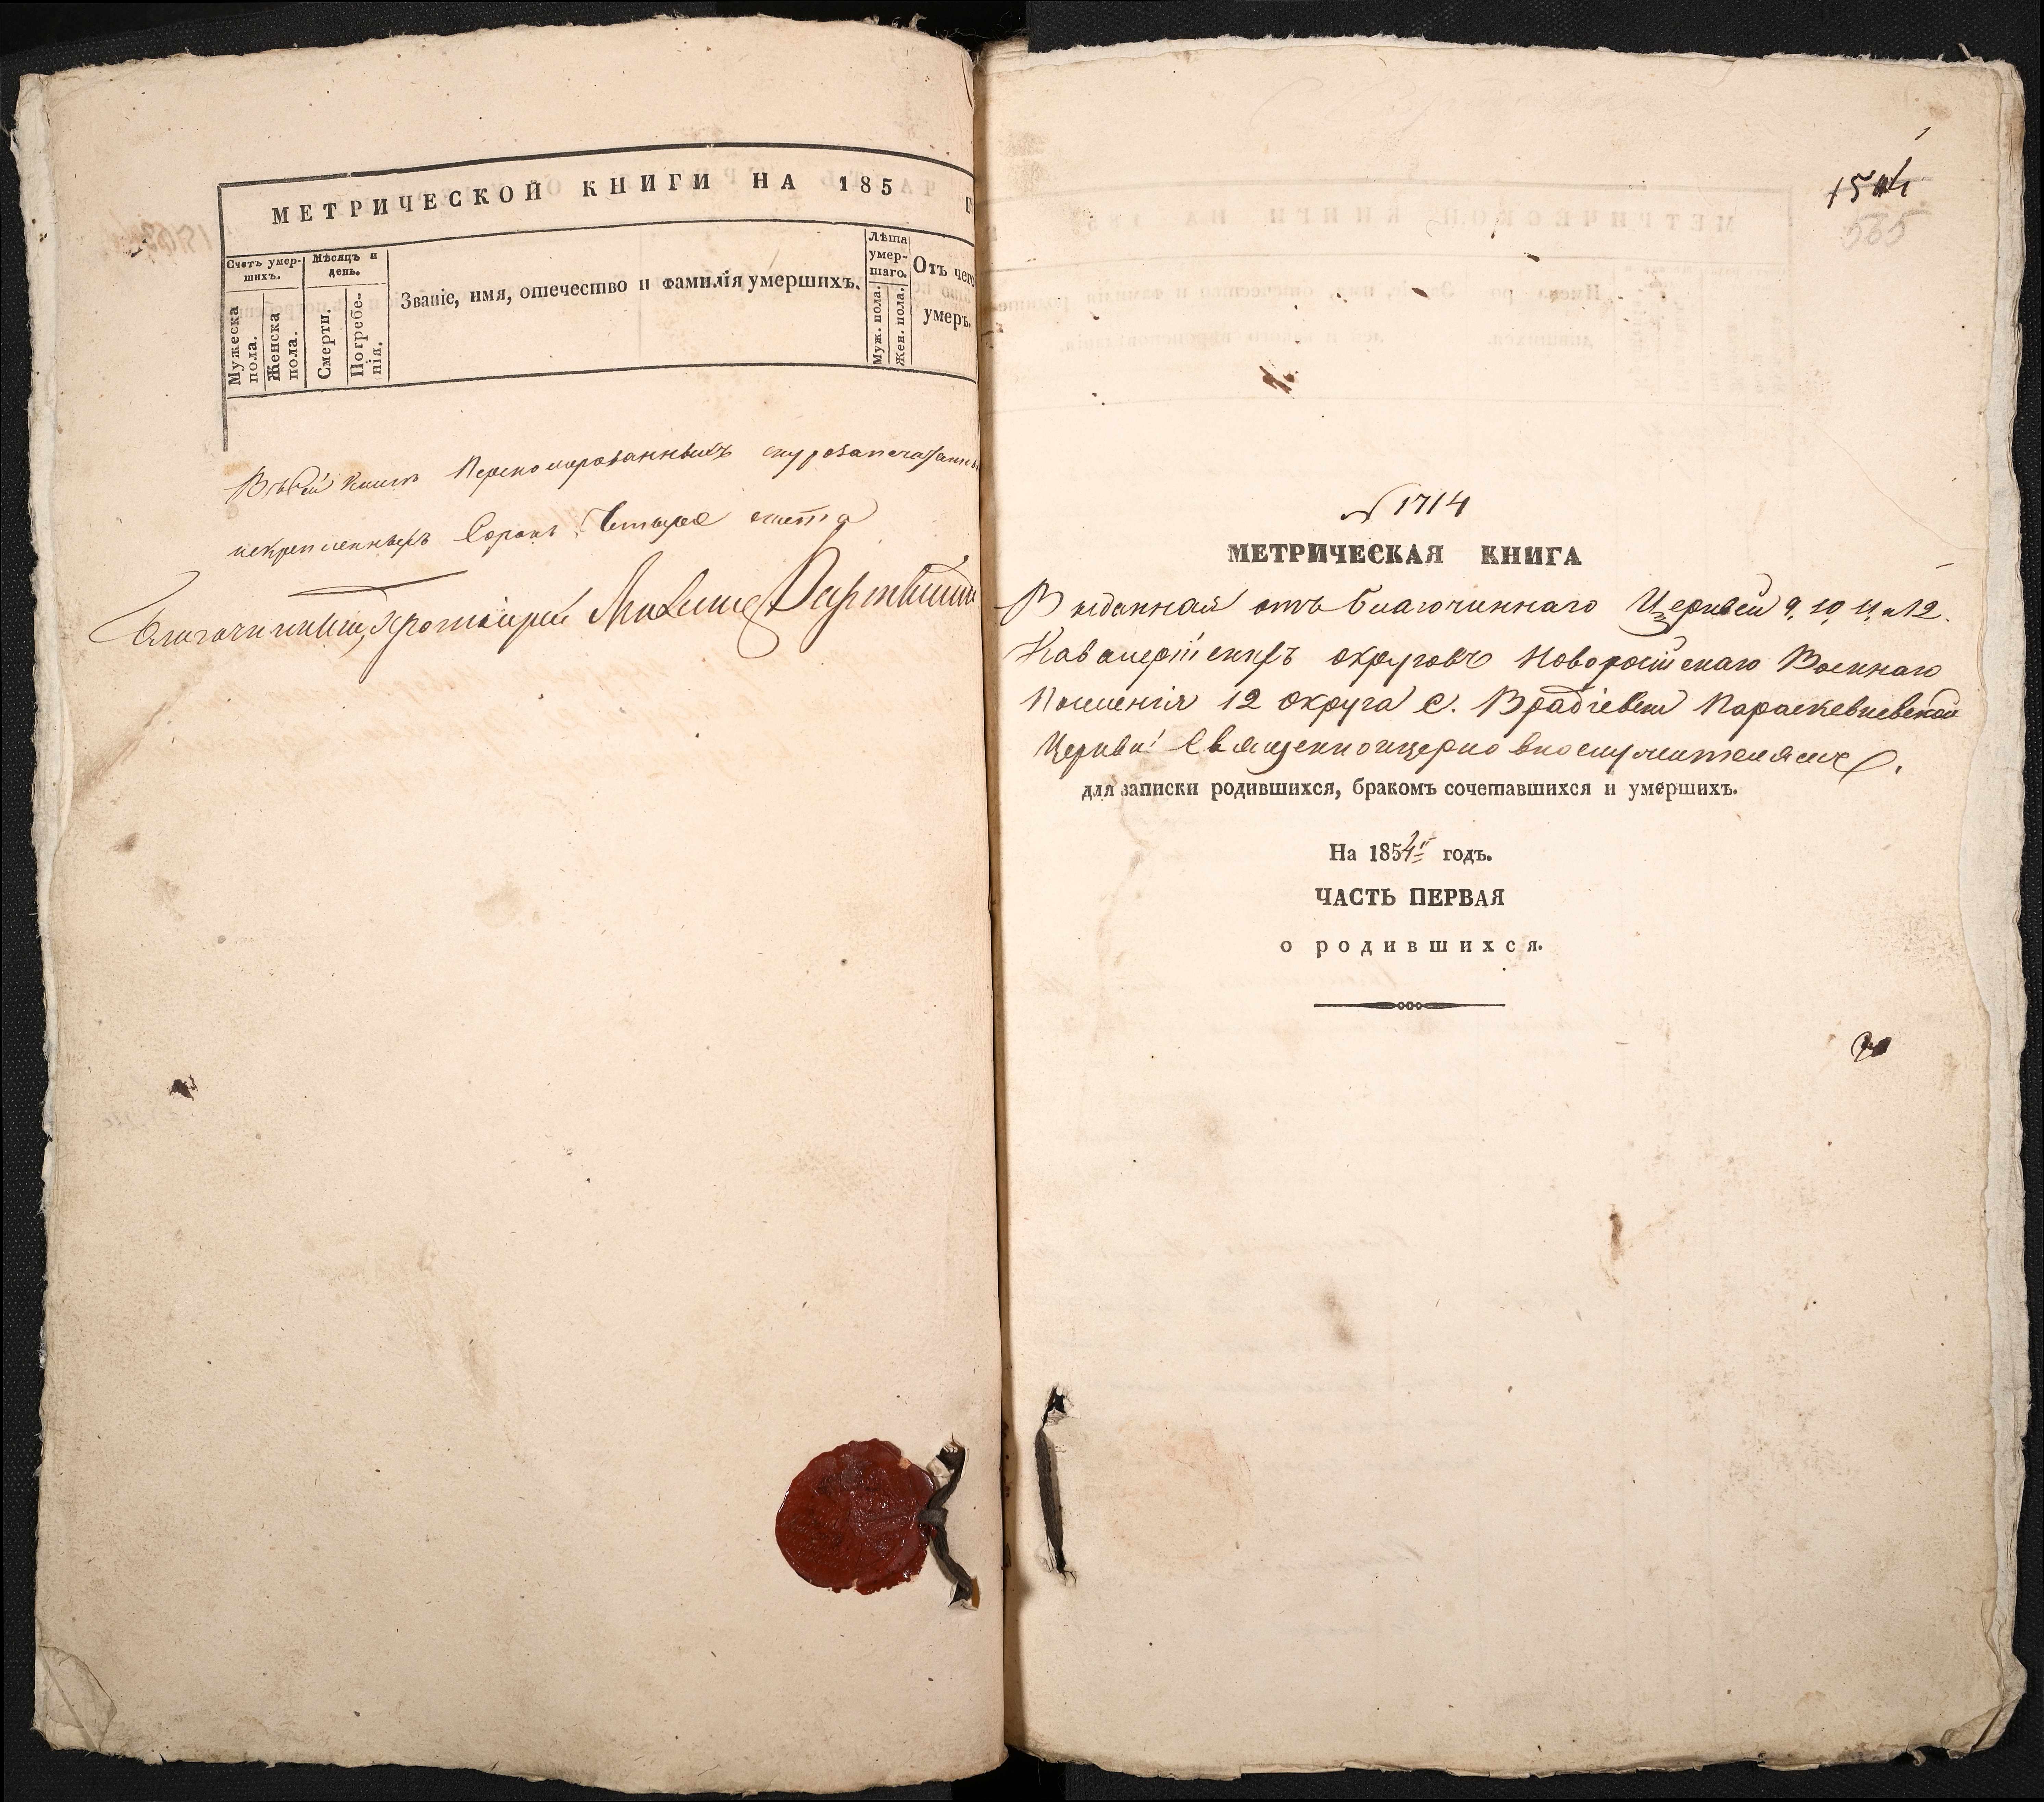 МЕТРИЧЕСКОЙ КНИГИ НА 185 Г
Счетъ умер-
шихъ.
Мужеска
пола.
Женска
пола.
Мѣсяцъ и
день.
Смерти.
Погребе-
нія.
Званіе, имя, отечество и фамилія умершихъ.
Лѣта
умер-
шаго.
Муж. пола.
Жен. пола.
Отъ чего
умеръ.
Въ сей книгѣ перекомерованныхъ
искрепленныхъ Сорокъ Четыре листа
Благочинный, Протоіерей
1
1504
565
№ 1714
МЕТРИЧЕСКАЯ КНИГА
Выданная отъ благочиннаго Церквей 9, 10, 11, и 12.
Кавалерійскихъ округовъ Новоросійскаго Военнаго
Поселенія 12 округа С. Врадіевки Параскевіевской
Церкви Священноцерковнослужителямъ.
для записки родившихся, бракомъ сочетавшихся и умершихъ.
На 1854й годъ.
ЧАСТЬ ПЕРВАЯ
о родившихся.